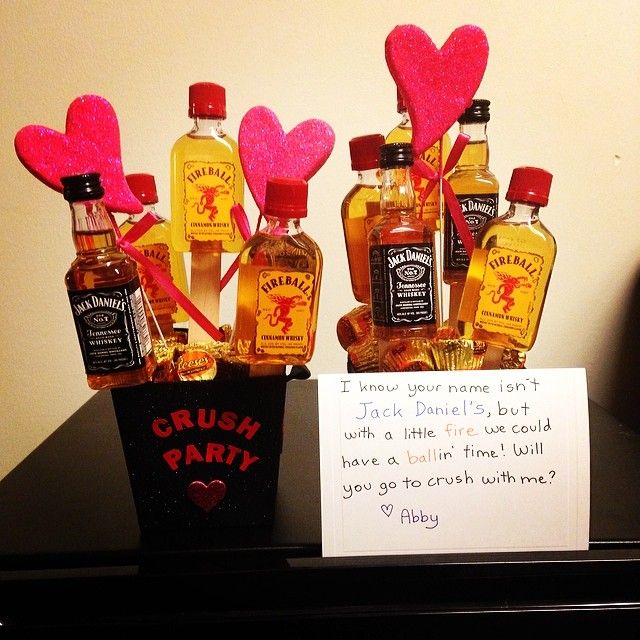 FIREBALL
CINNAMON WHISKY
JACK DANIEL'S
Tennessee
WHISKEY
FIREBALL
CINNAMON WHISKY
JACK DANIEL'S
Tennessee
WHISKEY
JACK DANIEL'S
FIREBALL
CINNAMON WHISKY
Reese's
CRUSH
PARTY
I know your name isn't
Jack Daniel's, but
with a little fire we could
have a ballin' time! Will
you go to crush with me?
♡ Abby